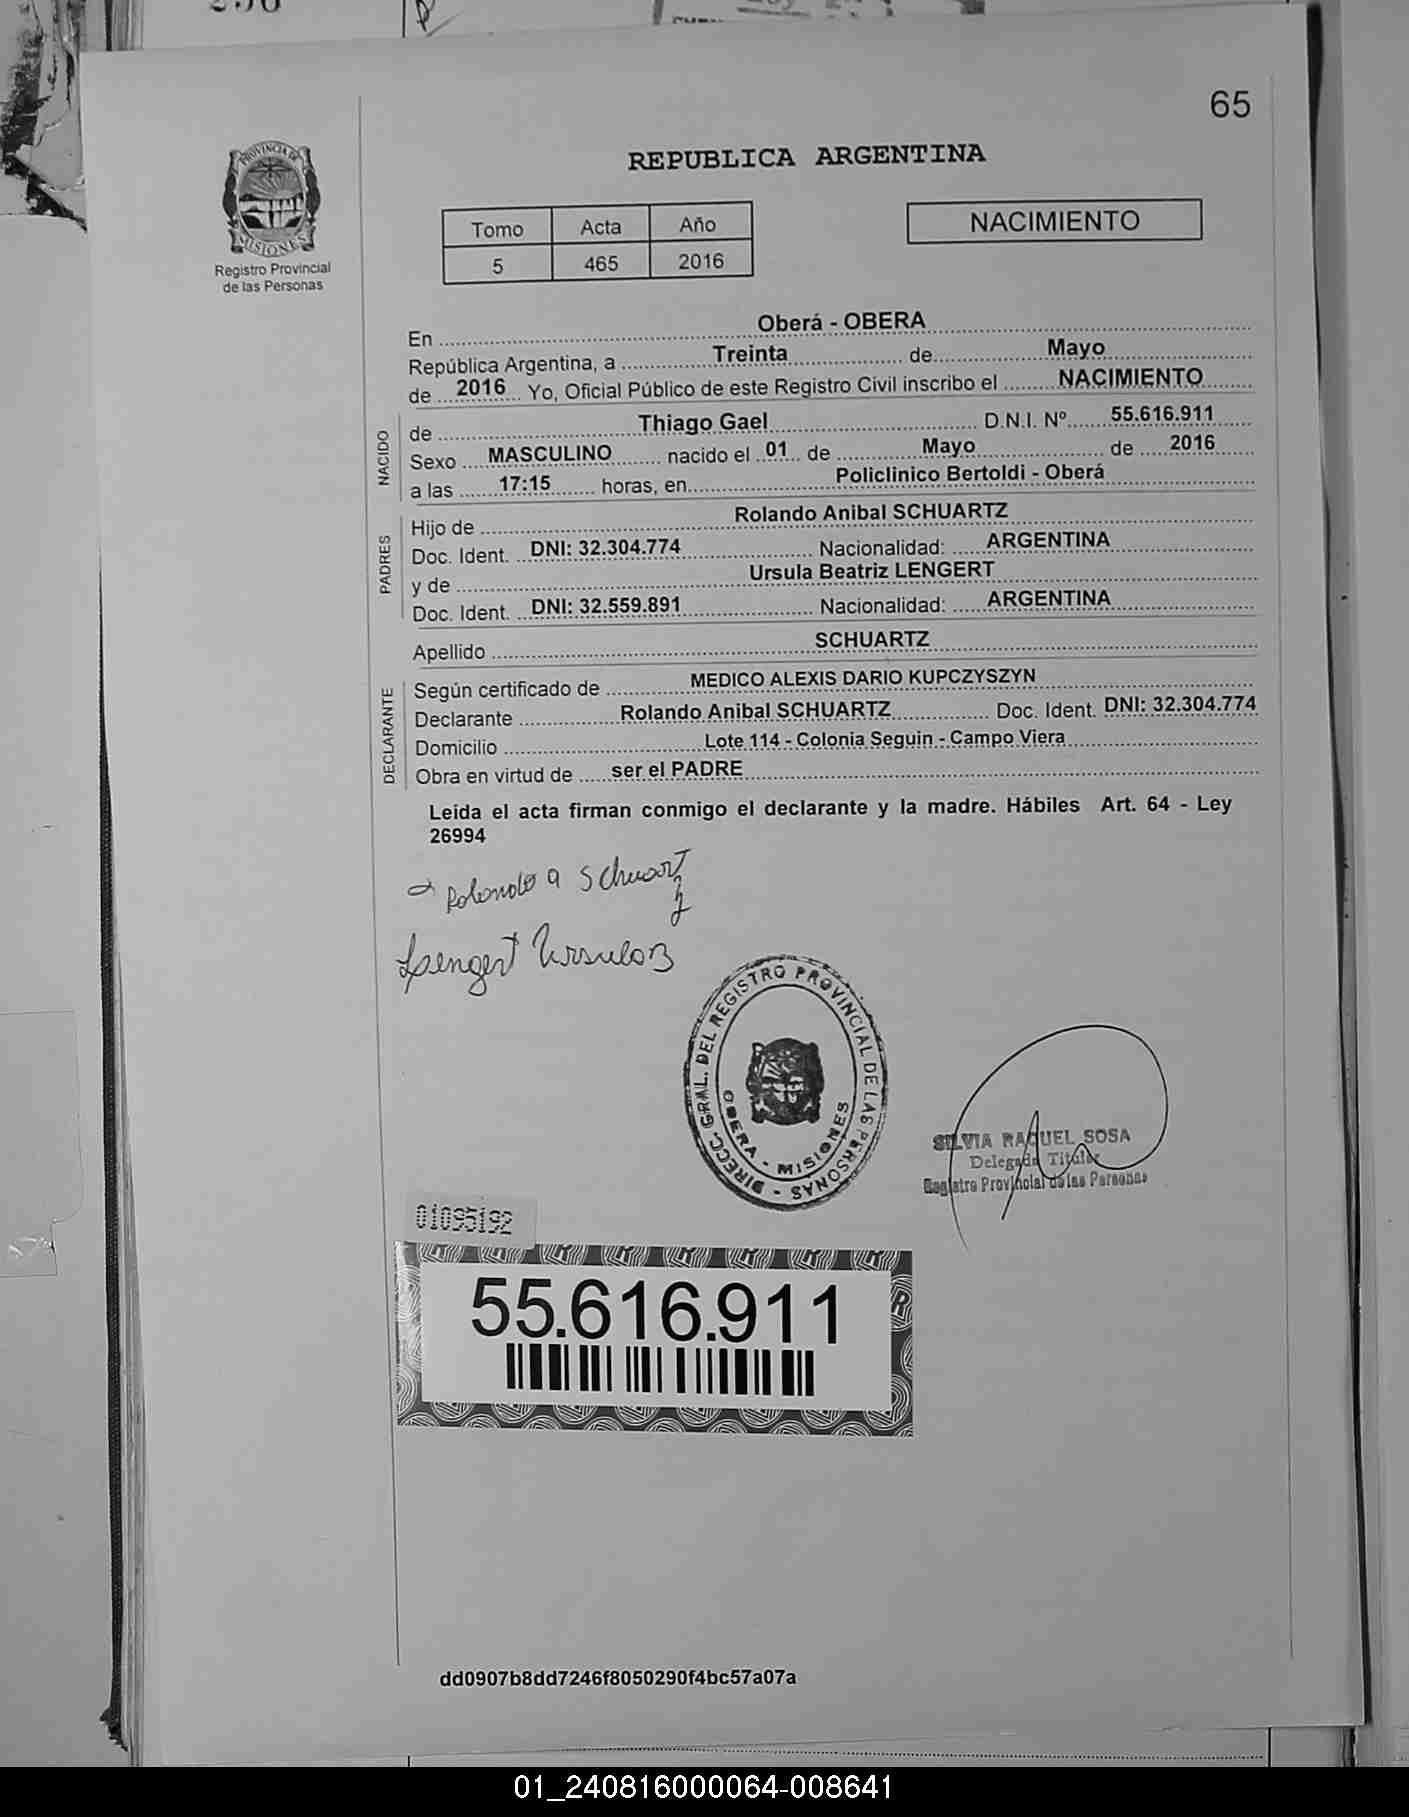 65
PROVINCIA DE
MISIONES
Registro Provincial
de las Personas
REPUBLICA ARGENTINA
Tomo Acta Año
5 465 2016
NACIMIENTO
En Oberá - OBERA
República Argentina, a Treinta de Mayo
de 2016 Yo, Oficial Público de este Registro Civil inscribo el NACIMIENTO
NACIDO
de Thiago Gael D.N.I. Nº 55.616.911
Sexo MASCULINO nacido el 01 de Mayo de 2016
a las 17:15 horas, en Policlinico Bertoldi - Oberá
PADRES
Hijo de Rolando Anibal SCHUARTZ
Doc. Ident. DNI: 32.304.774 Nacionalidad: ARGENTINA
y de Ursula Beatriz LENGERT
Doc. Ident. DNI: 32.559.891 Nacionalidad: ARGENTINA
Apellido SCHUARTZ
DECLARANTE
Según certificado de MEDICO ALEXIS DARIO KUPCZYSZYN
Declarante Rolando Anibal SCHUARTZ Doc. Ident. DNI: 32.304.774
Domicilio Lote 114 - Colonia Seguin - Campo Viera
Obra en virtud de ser el PADRE
Leida el acta firman conmigo el declarante y la madre. Hábiles Art. 64 - Ley
26994
Rolando a Schuartz
Lengert Ursula B
DIRECC. GRAL. DEL REGISTRO PROVINCIAL DE LAS PERSONAS -
OBERA - MISIONES
SILVIA RAQUEL SOSA
Delegada Titular
Registro Provincial de las Personas
01095192
55.616.911
dd0907b8dd7246f8050290f4bc57a07a
01_240816000064-008641